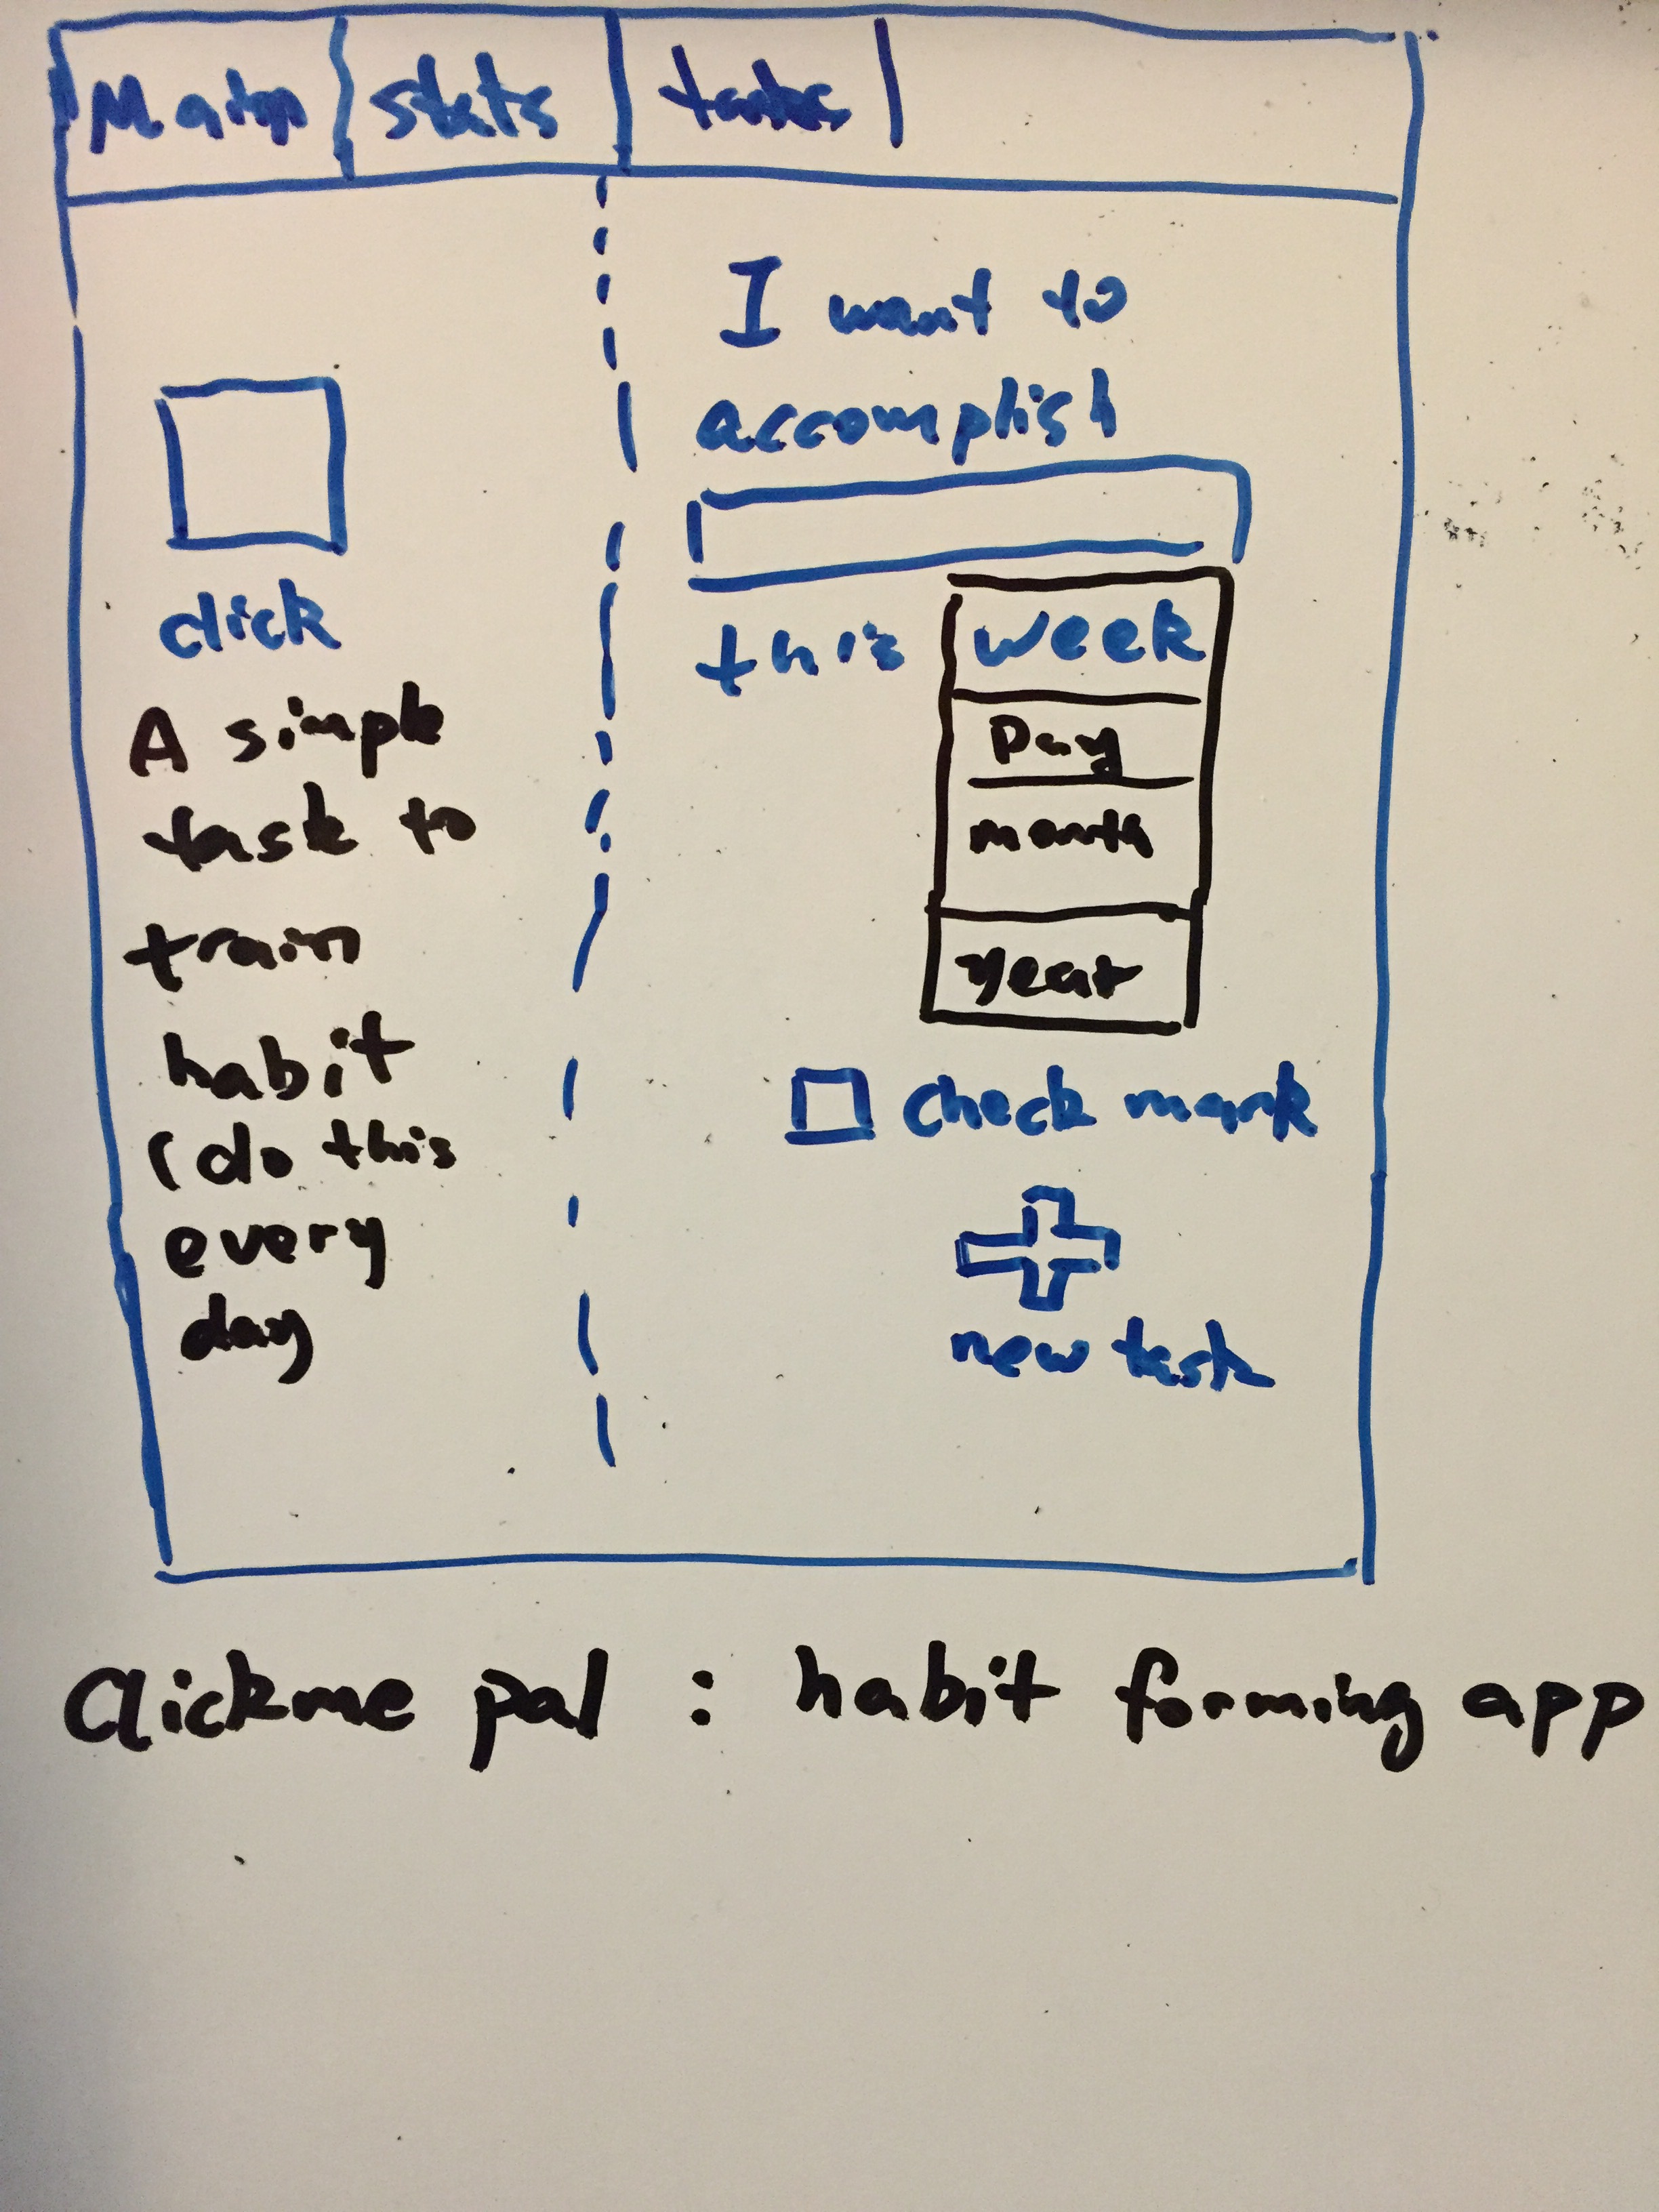 Main
Stats
click
A simple
task to
train
habit
(do this
every
day
I want to
accomplish
this
week
Day
month
year
check mark
new task
Clickme pal : habit forming app